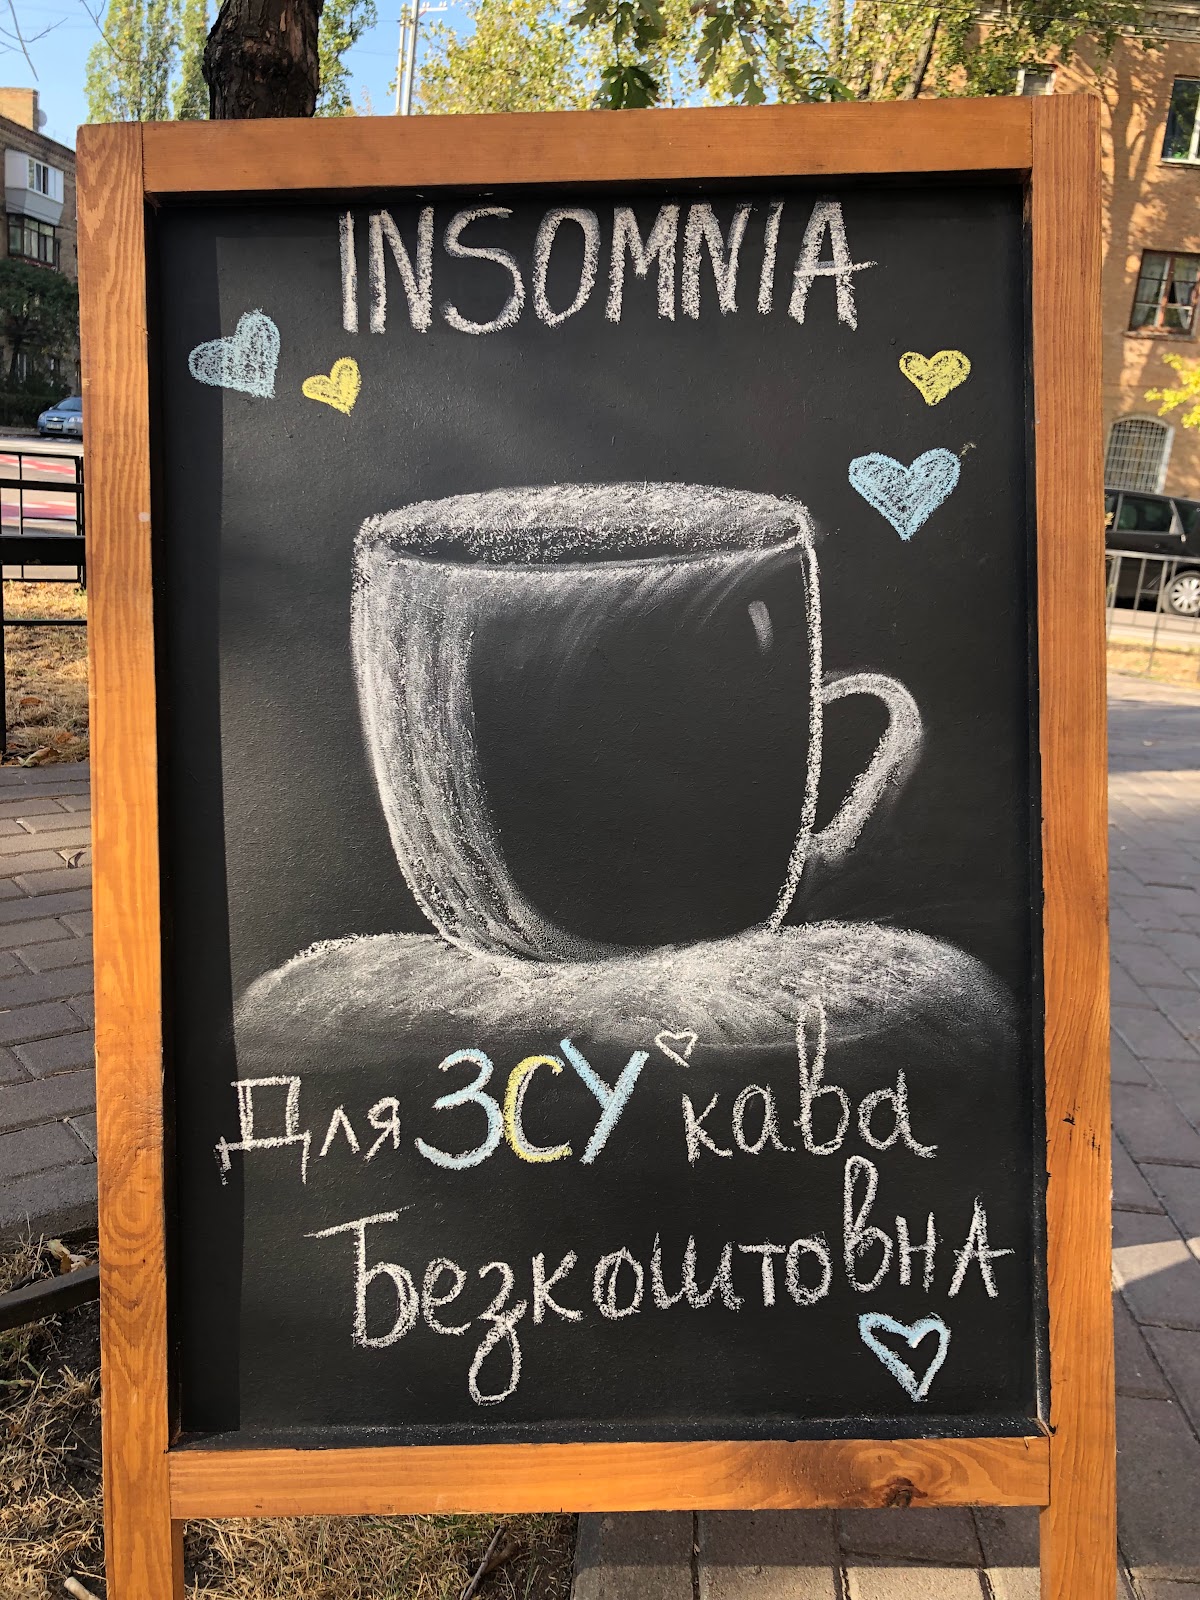 INSOMNIA
Для ЗСУ кава
Безкоштовна